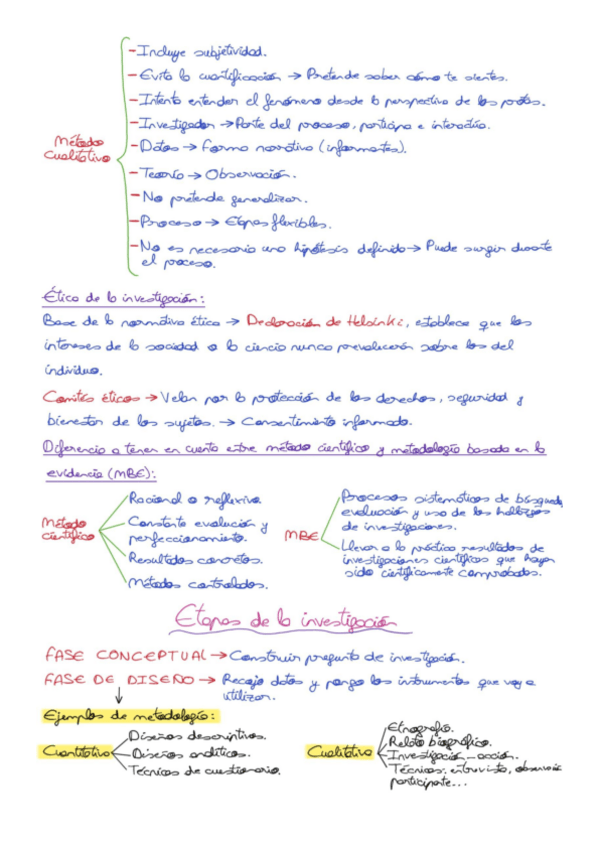 -Incluye subjetividad.
-Evita la cuantificación → Pretende saber cómo te sientes.
-Intenta entender el fenómeno desde la perspectiva de los protas.
-Investigador → Parte del proceso, participa e interactúa.
Método
Cualitativo
-Datos → Forma narrativa (informantes).
-Teoría → Observación.
-No pretende generalizar.
-Proceso → Etapas flexibles.
-No es necesario una hipótesis definida → Puede surgir durante
el proceso.
Ética de la investigación:
Base de la normativa ética → Declaración de Helsinki, establece que los
intereses de la sociedad o la ciencia nunca prevalecerán sobre los del
individuo.
Comités éticos → Velan por la protección de los derechos, seguridad y
bienestar de los sujetos. → Consentimiento informado.
Diferencia a tener en cuenta entre método científico y metodología basada en la
evidencia (MBE):
Método
científico
Racional o reflexiva.
Constante evolución y
perfeccionamiento.
Resultados concretos.
Métodos controlados.
MBE
Procesos sistemáticos de búsqueda,
evaluación y uso de los hallazgos
de investigaciones.
Llevar a la práctica resultados de
investigaciones científicas que hayan
sido científicamente comprobados.
Etapas de la investigación
FASE CONCEPTUAL → Construir pregunta de investigación.
FASE DE DISEÑO → Recojo datos y pongo los instrumentos que voy a
utilizar.
Ejemplos de metodología:
Cuantitativo
Diseños descriptivos.
Diseños analíticos.
Técnicas de cuestionario.
Cualitativo
Etnografía.
Relato biográfico.
Investigación-acción.
Técnicas: entrevista, observación
participante...